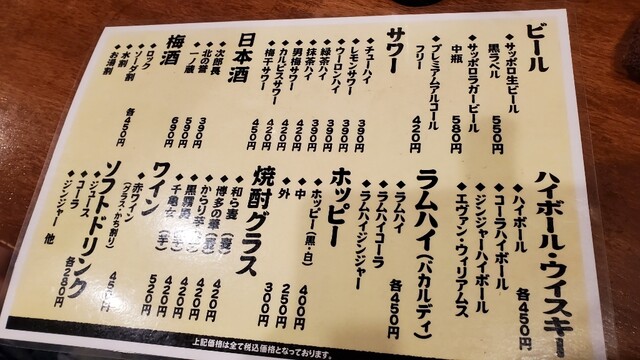 ビール
◆サッポロ生ビール
黒ラベル 550円
◆サッポロラガービール
中瓶 580円
◆プレミアムアルコール
フリー 420円
サワー
◆チューハイ 390円
◆レモンサワー 390円
◆ウーロンハイ 390円
◆緑茶ハイ 390円
◆抹茶ハイ 390円
◆男梅サワー 420円
◆カルピスサワー 420円
◆梅干サワー 450円
日本酒
◆次郎長 390円
◆北の誉 590円
◆一ノ蔵 690円
梅酒
◆ロック
◆ソーダ割
◆水割
◆お湯割
各450円
ハイボール・ウィスキー
◆ハイボール
◆コーラハイボール
◆ジンジャーハイボール
◆エヴァン・ウィリアムス
各450円
ラムハイ(バカルディ)
◆ラムハイ
◆ラムハイコーラ
◆ラムハイジンジャー
各450円
ホッピー
◆ホッピー(黒・白) 400円
◆中 250円
◆外 300円
焼酎グラス
◆和ら麦 420円
◆博多の華(麦) 420円
◆からり芋(芋) 420円
◆黒霧島(芋) 420円
◆千亀女(芋) 520円
ワイン
◆赤ワイン
(グラス・かち割り) 450円
ソフトドリンク
◆ジュース
◆コーラ
◆ジンジャー 他
各280円
上記価格は全て税込価格となっております。